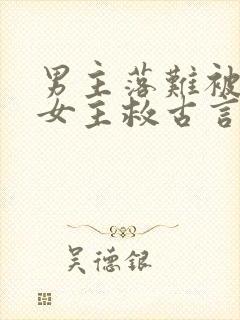 男主落難被
女主救古言
吴德银